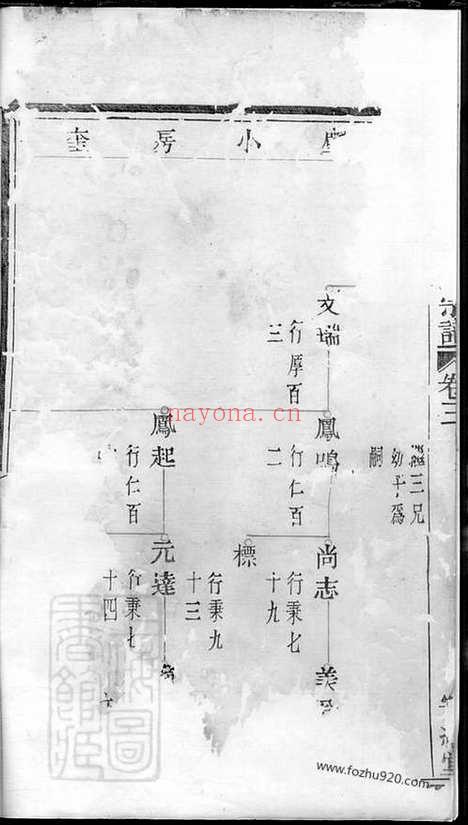 小房奎
宗譜 卷三
繼三兄
幼子爲
嗣
文瑞
行厚百
三
鳳鳴
行仁百
二
尚志
行秉七
十九
美
標
行秉九
十三
鳳起
行仁百
元達
行秉七
十四
nayona.cn
www.fozhu920.com